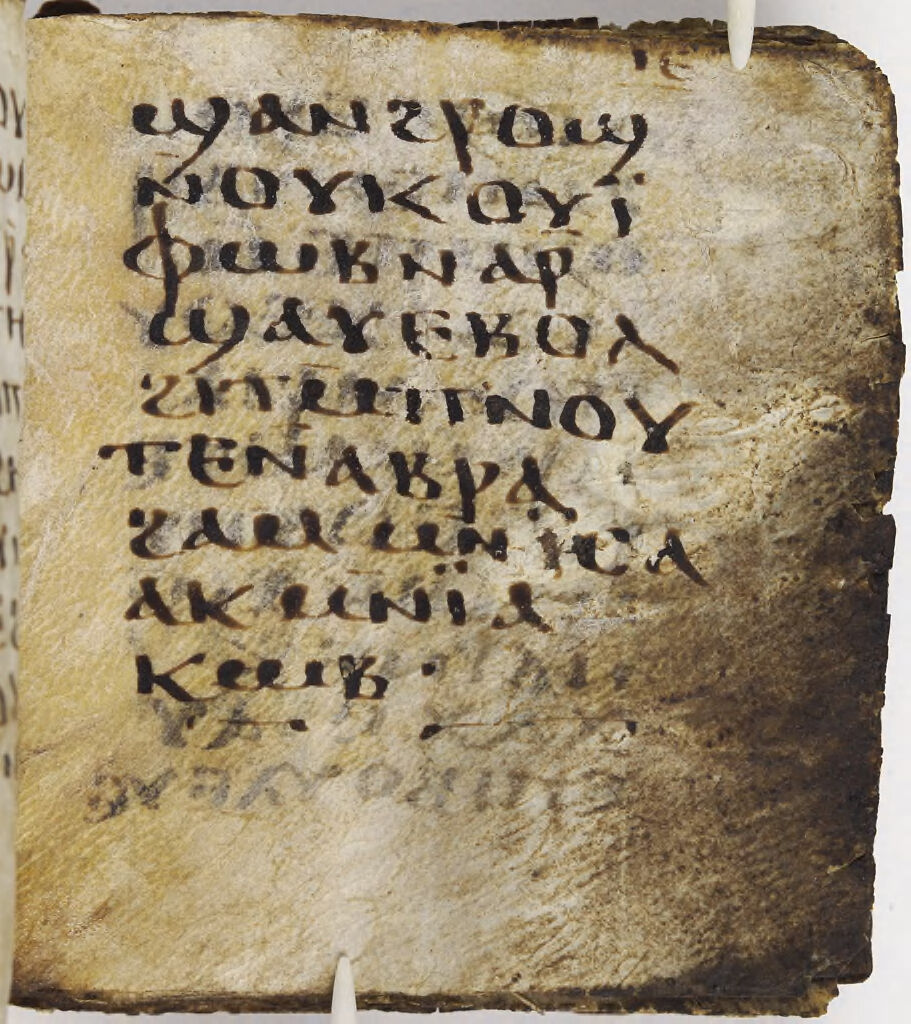 ϣⲁⲛϩⲣⲟϣ
ⲛⲟⲩⲕⲟⲩⲓ̈
ⲫⲱⲃⲛⲁⲣ
ϣⲁⲩⲉⲃⲟⲗ
ϩⲓⲧⲙⲡⲛⲟⲩ
ⲧⲉⲛⲁⲃⲣⲁ
ϩⲁⲙⲙⲛⲓⲥⲁ
ⲁⲕⲙⲛⲓ̈ⲁ
ⲕⲱⲃ·